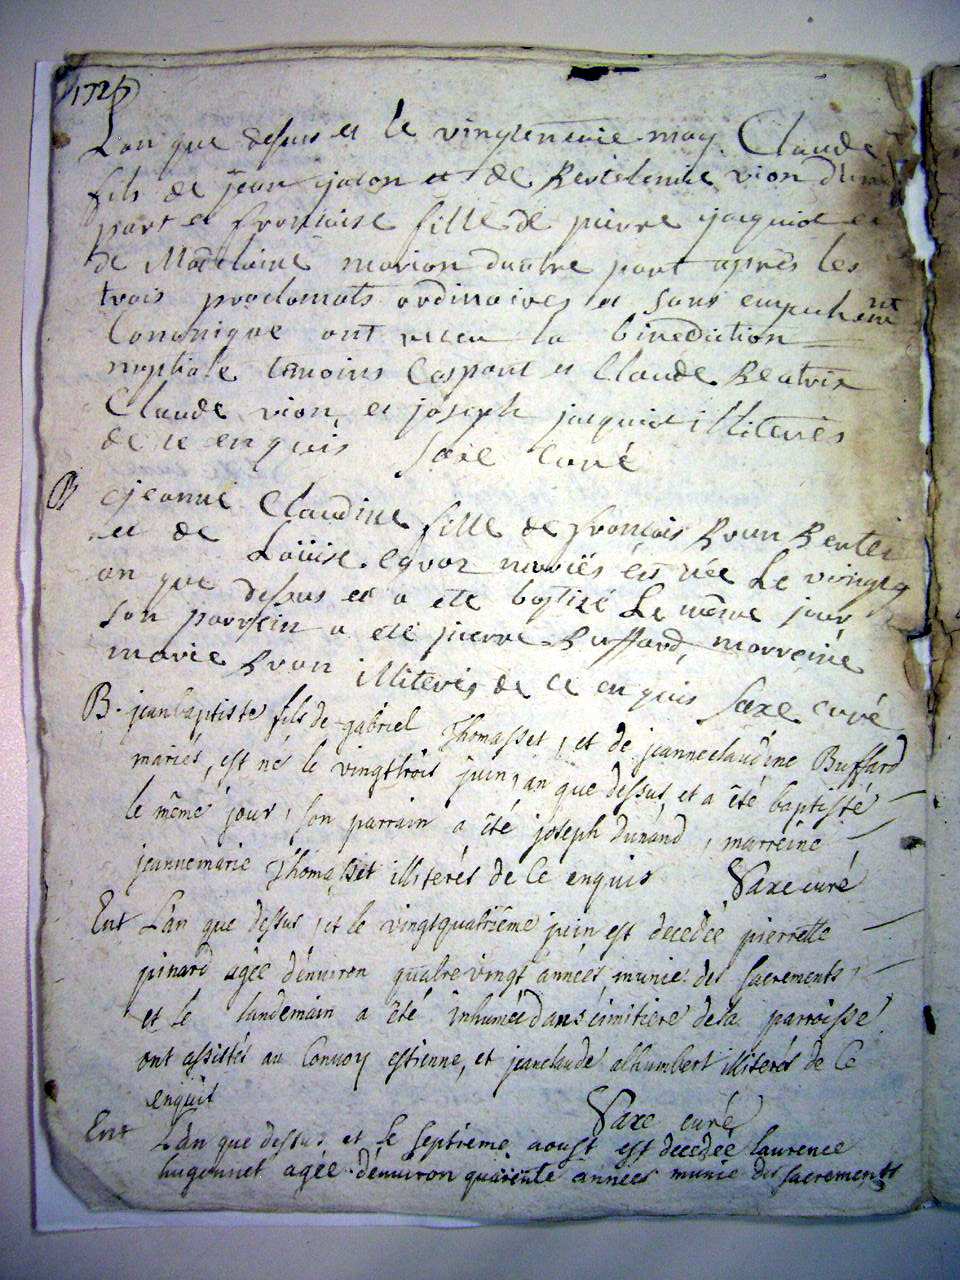 L'an que dessus et le vingtneuvie may Claude
fils de jean jacon et de Bertelemie vion d'une
part et fronsaise fille de pierre jacquiot et
de Madelaine morion dautre part après les
trois proclomats ordinoires et sans empechemnt
Cononique ont receu la binediction
nuptiale temoins Gaspart et Claude Beatrix
Claude vion et joseph jacquiot illiterés
de ce enquis Saxe curé
B jeanne Claudine fille de fronsois
et de Loüise mariés est née Le
an que dessus et a ete boptizé Le même jour
son parrein a eté pierre Buffard, morreine
marie illiterés de ce enquis Saxe curé
B. jeanbaptiste fils de gabriel Thomasset, et de jeanneclaudine Buffard
mariés, est né le vingttrois juin, an que dessus, et a été baptisté
le même jour, son parrain a été joseph dunand, marreine
jeannemarie Thomasset illiterés de Ce enquis Saxe curé
Ent L'an que dessus, et le vingtquatrième juin est decedée pierrette
pinard agée d'énuiron quatrevingt années, munie des sacrements,
et le landemain a été inhumée dans cimitiere de la parroisse
ont assistés au Convoy estienne, et jeanclaude alhumbert illiterés de Ce
enquit Saxe curé
Ent L'an que dessus et le septième aoust est decedée laurence
hugonnet agée d'énuiron quarente années munie des sacrements